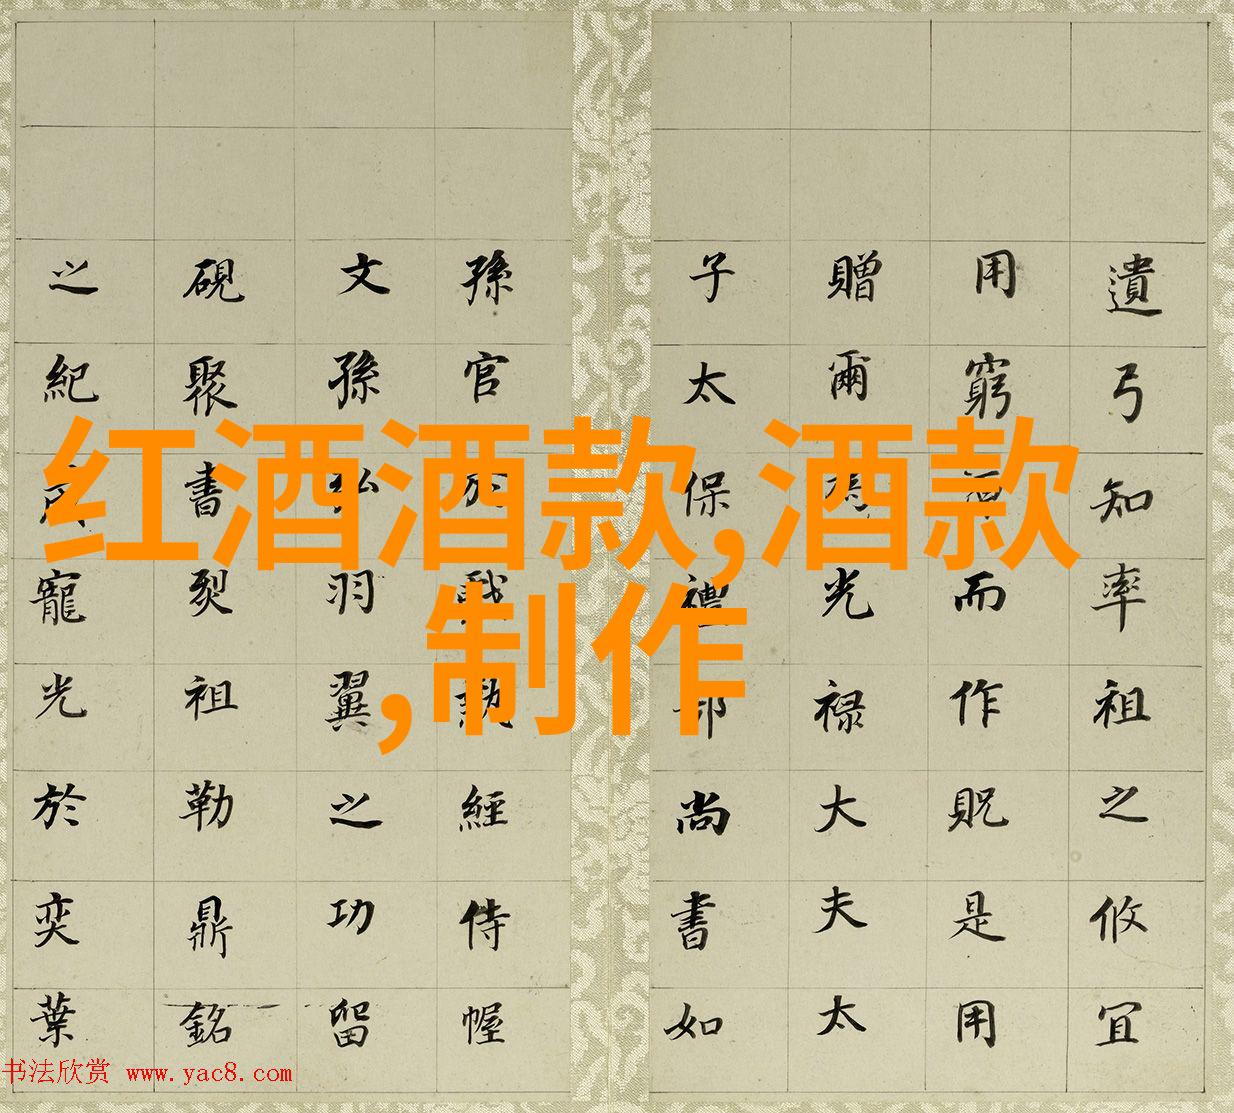 遺弓知率祖之攸宜
用窮而作貺是用
贈爾為光禄大夫太
子太保禮部尚書如
孫官於經侍幄
文孫弘羽翼之功留
硯聚書烈祖勒鼎銘
之紀寵光於奕葉
红酒酒款,酒款
,制作
书法欣赏 www.yac8.com